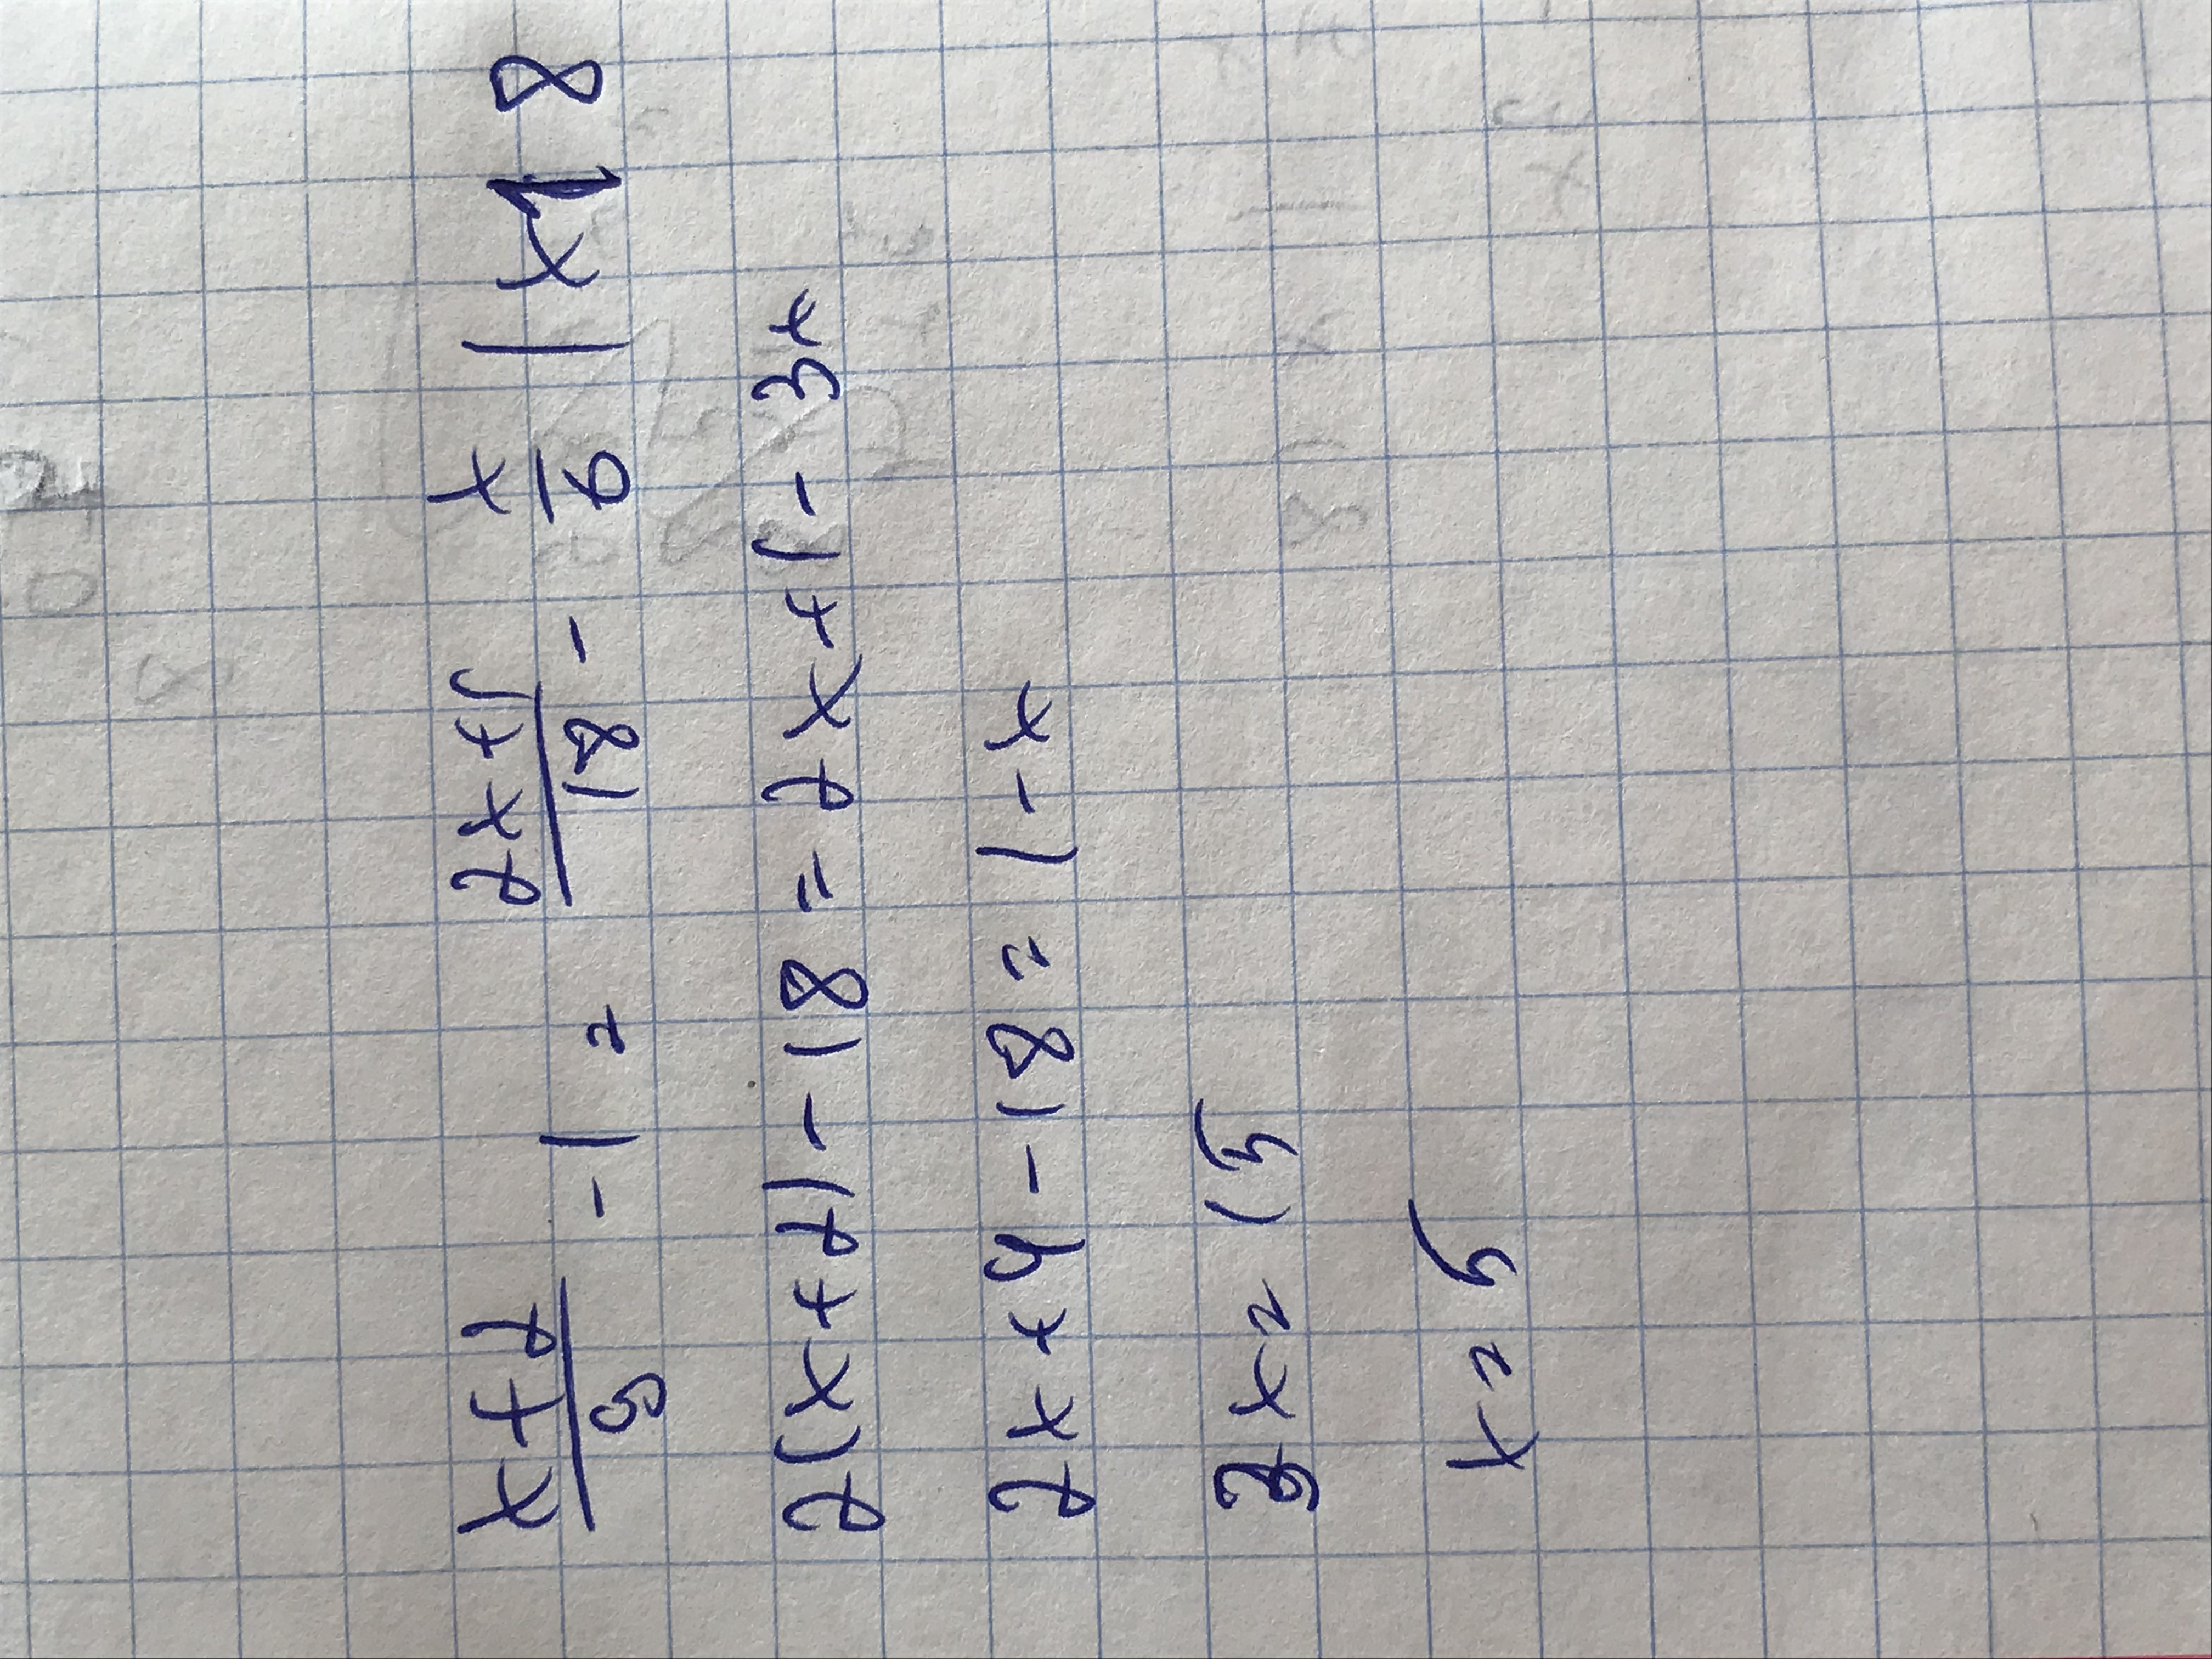 (x+2)/9 - 1 = (2x+1)/18 - x/6 | x18
2(x+2) - 18 = 2x+1 - 3x
2x+4 - 18 = 1 - x
3x = 15
x = 5